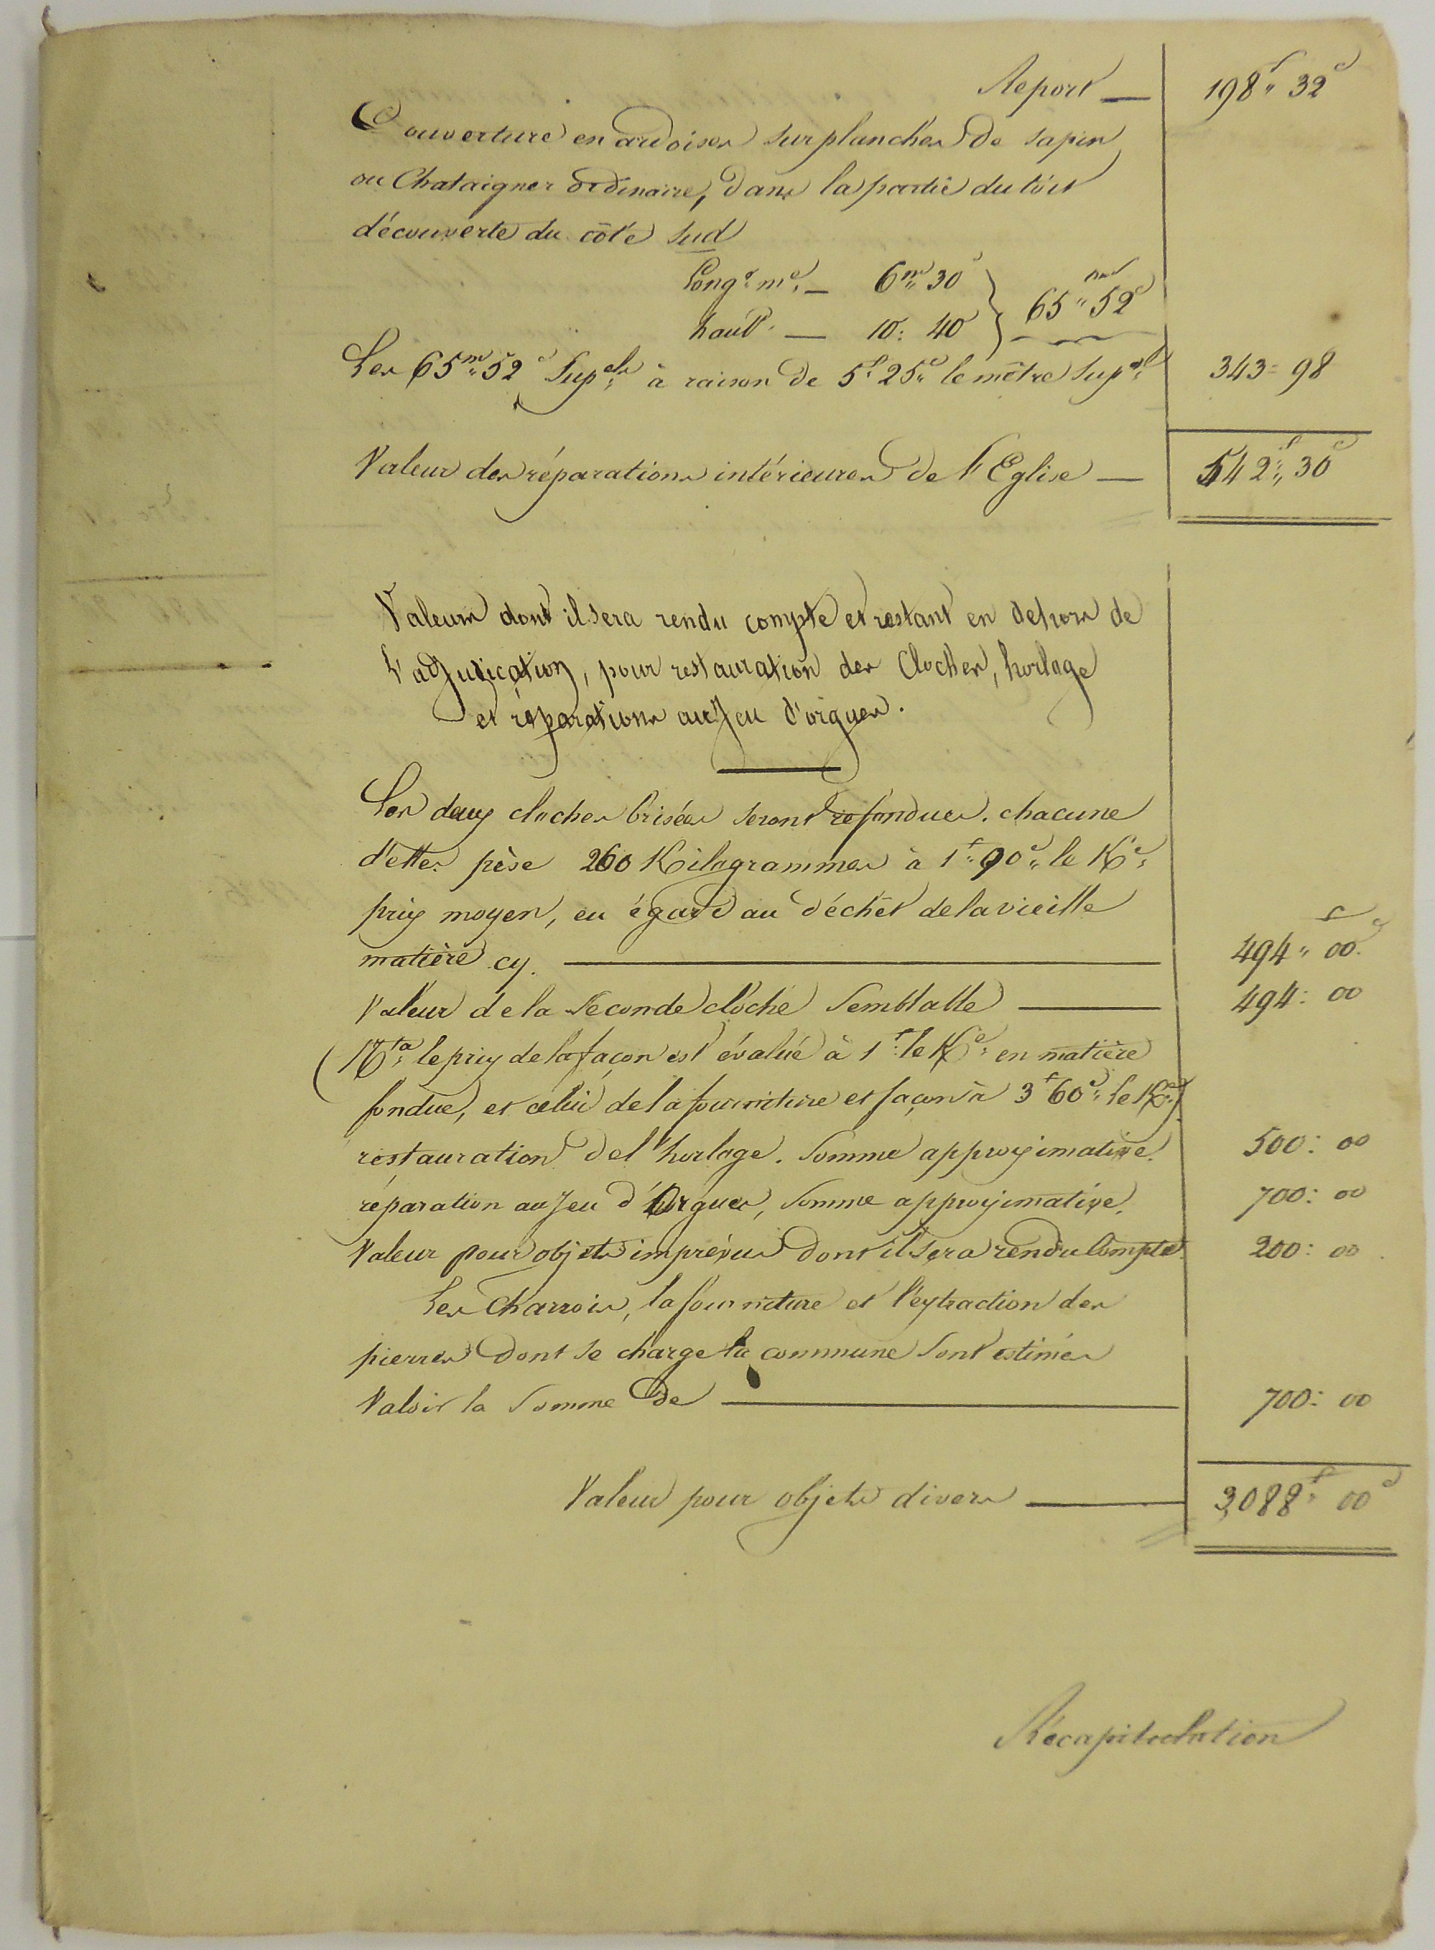 Report — 198f" 32c
Couverture en ardoises sur planches de sapin
ou Chataigner ordinaire, dans la partie du toît
découverte du côté sud
Longr. me. — 6m" 30c
hautr. — 10: 40 } 65m" 52c
Les 65m" 52c Supels à raison de 5f 25c le mêtre Supel 343= 98
Valeur des réparations intérieures de l'Eglise — 542f" 30c
Valeurs dont il sera rendu compte et restant en dehors de
L'adjudication, pour restauration des Cloches, horloge
et réparations au Jeu d'orgues.
Les deux cloches brisées seront refondues. chacune
d'elles pèse 260 Kilogrammes à 1f" 90c" le Ke:
prix moyen, eu égard au déchêt de la vieille
matière cy. — 494f" 00c
Valeur de la Seconde cloche Semblable — 494: 00
(Nta: le prix de la façon est évalué à 1f le Ke: en matière
fondue, et celui de la fourniture et façon à 3f 60c" le Ke:)
restauration de l'horloge. Somme approximative. 500: 00
réparation au Jeu d'Orgues, Somme approximative. 700: 00
Valeur pour objets imprévus dont il sera rendu Compte 200: 00
Les Charrois, la fourniture et l'extraction des
pierres dont se charge la commune Sont estimés
Valoir la Somme de — 700: 00
Valeur pour objets divers — 3,088f" 00c
Récapitulation